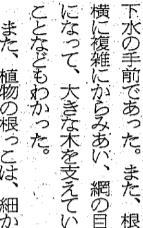 下水の手前であった。また、根
横に複雑にからみあい、網の目
になって、大きな木を支えてい
ことなどもわかった。
また、植物の根っこは、細か